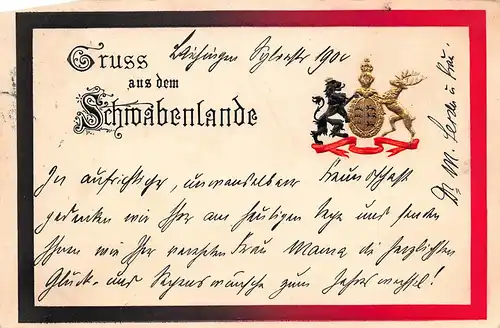 Gruss
aus dem
Schwabenlande
Sylvester 1900
In aufrichtiger, unwandelbarer Freundschaft
gedenken wir Ihrer am heutigen Tage und senden
Ihnen wie Ihrer verehrten Frau Mama die herzlichsten
Glück- und Segenswünsche zum Jahreswechsel!
Dr. M. u. Frau.